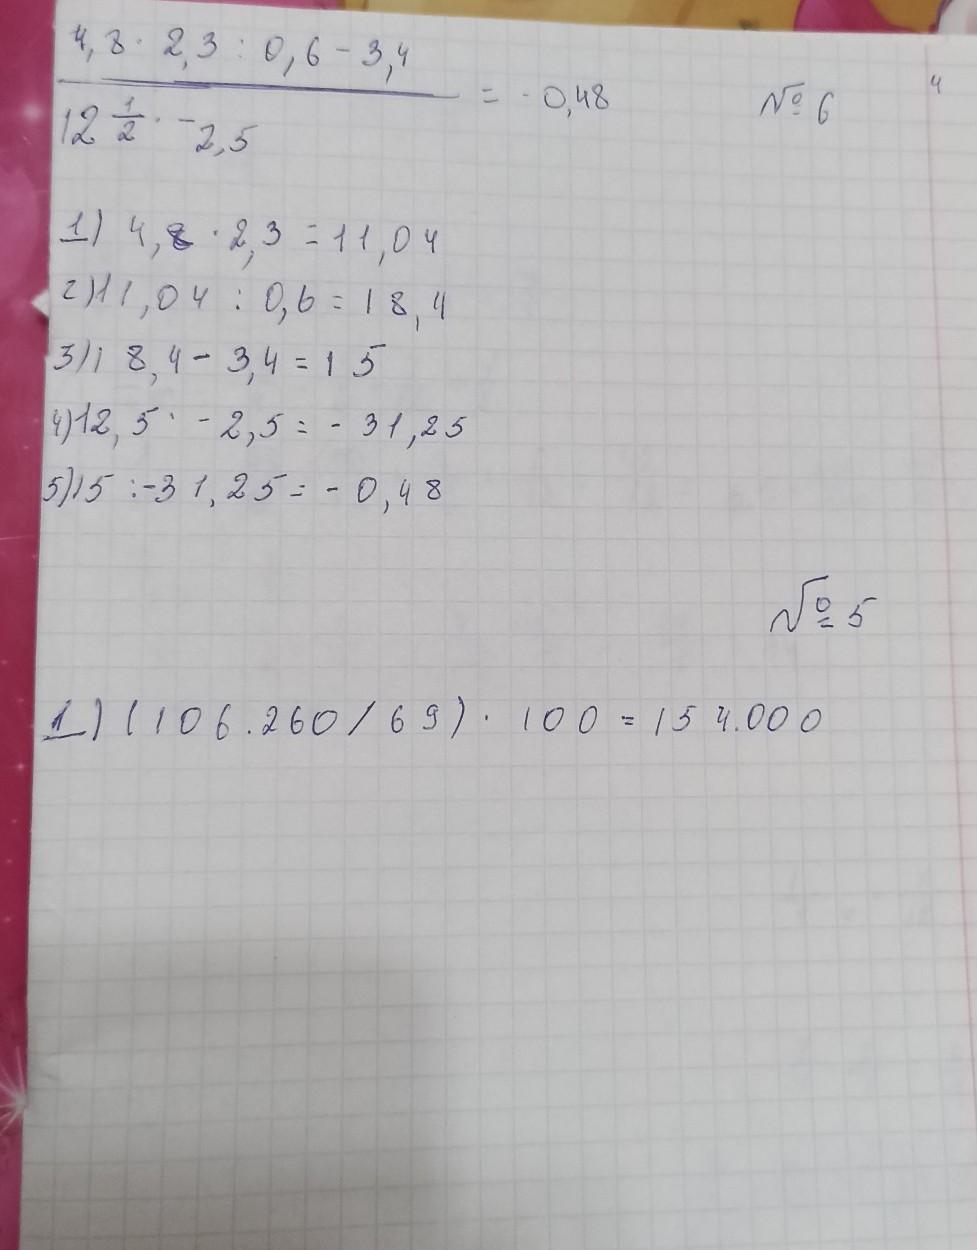 4,8 · 2,3 : 0,6 - 3,4
12 1/2 · -2,5
= -0,48
№ 6
4
1) 4,8 · 2,3 = 11,04
2) 11,04 : 0,6 = 18,4
3) 18,4 - 3,4 = 15
4) 12,5 · -2,5 = -31,25
5) 15 : -31,25 = -0,48
№ 5
1) (106.260/69) · 100 = 154.000